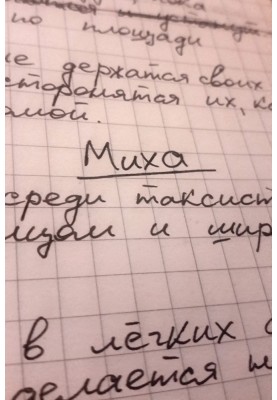 по площади
держатся своих
сторонятся их, к
Миха
среди таксист
и шир
в лёгких
делается